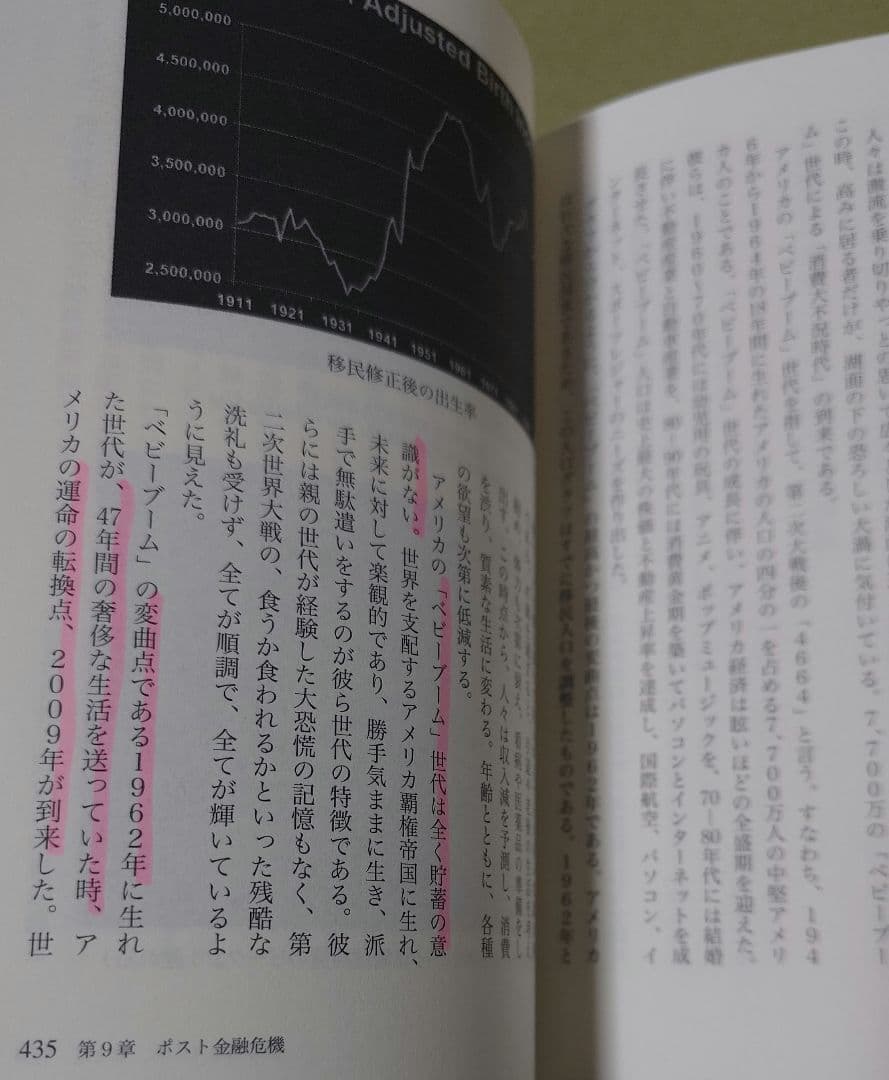 人々は激流を乗り切りやっとの思いで
この時、高みに居る者だけが、湖面の下の恐ろしい大渦に気付いている。7,700万の「ベビーブー
ム」世代による「消費大不況時代」の到来である。
アメリカの「ベビーブーム」世代を指して、第二次大戦後の「4664」と言う。すなわち、194
6年から1964年の18年間に生れたアメリカの人口の四分の一を占める7,700万人の中堅アメリ
カ人のことである。「ベビーブーム」世代の成長に伴い、アメリカ経済は眩いほどの全盛期を迎えた。
彼らは、1960〜70年代には アニメ、ポップミュージックを、70―80年代には結婚
に伴い不動産産業と自動車産業を、80―90年代には消費黄金期を築いてパソコンとインターネットを成
長させた。「ベビーブーム」人口は史上最大の株価と不動産上昇率を達成し、国際航空、パソコン、イ
ンターネット、 を作り出した。
変曲点は1962年である。アメリカ
この人口 はすでに移民人口を調整したものである。1962年と
Adjusted
5,000,000
4,500,000
4,000,000
3,500,000
3,000,000
2,500,000
1911 1921 1931 1941 1951 1961
移民修正後の出生率
出す。この時点から、人々は収入減を予測し、消費
を渋り、質素な生活に変わる。年齢とともに、各種
の欲望も次第に低減する。
アメリカの「ベビーブーム」世代は全く貯蓄の意
識がない。世界を支配するアメリカ覇権帝国に生れ、
未来に対して楽観的であり、勝手気ままに生き、派
手で無駄遣いをするのが彼ら世代の特徴である。彼
らには親の世代が経験した大恐慌の記憶もなく、第
二次世界大戦の、食うか食われるかといった残酷な
洗礼も受けず、全てが順調で、全てが輝いているよ
うに見えた。
「ベビーブーム」の変曲点である1962年に生れ
た世代が、47年間の奢侈な生活を送っていた時、ア
メリカの運命の転換点、2009年が到来した。世
435 第9章 ポスト金融危機